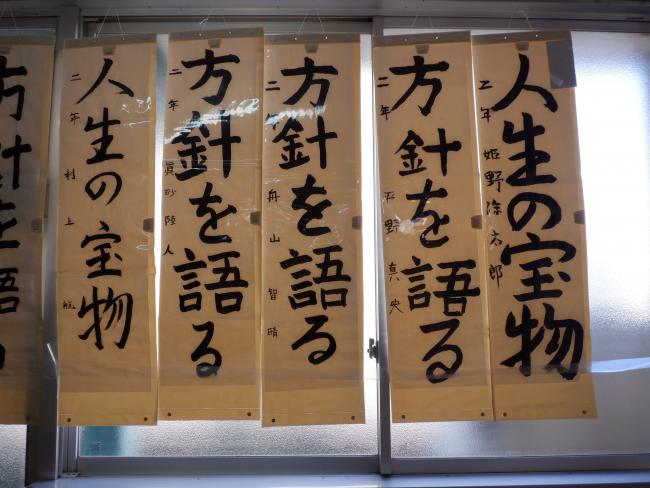 人生の宝物
二年 姫野涼太郎
方針を語る
二年 野真央
方針を語る
二年 舟山智晴
方針を語る
二年 眞砂陸人
人生の宝物
二年 村上
方針を語る